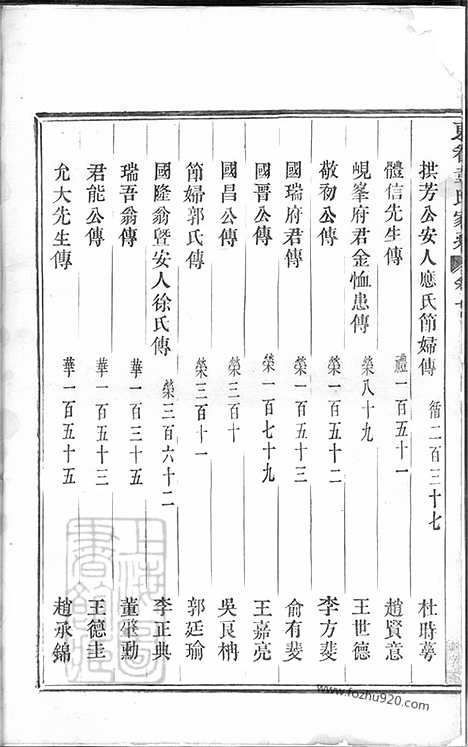 拱芳公安人應氏節婦傳 循二百三十七 杜時芳
體信先生傳 禮一百五十一 趙賢意
峴峯府君金恤患傳 榮八十九 王世德
敬初公傳 榮一百五十二 李方蓁
國瑞府君傳 榮一百五十三 俞有斐
國晋公傳 榮一百七十九 王嘉亮
國昌公傳 榮三百十 吳良枬
節婦郭氏傳 榮三百十一 郭廷瑜
國隆翁暨安人徐氏傳 榮三百六十二 李正典
瑞吾翁傳 華一百三十五 董肇勳
君能公傳 華一百五十三 王德圭
允大先生傳 華一百五十五 趙承錦
上海圖書館藏
www.fozhu920.com